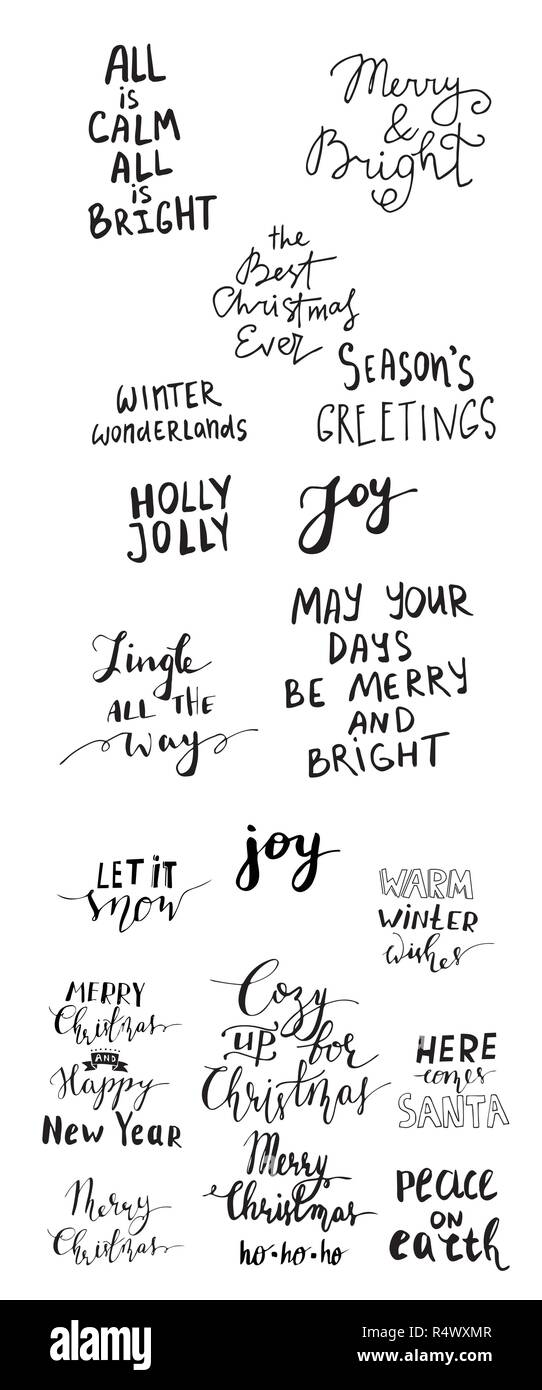 ALL
is
CALM
ALL
is
BRiGHT
Merry
&
Bright
the
Best
Christmas
Ever
SEASON'S
GREETINGS
WiNTER
WonDERLanDS
HOLLY
JOLLY
Joy
Jingle
ALL THE
way
MAY YOUR
DAYS
BE MERRY
AND
BRiGHT
joy
LET iT
snow
WARM
WiNTER
wishes
MERRY
Christmas
AND
Happy
New Year
Cozy
up for
Christmas
HERE
comes
SANTA
Merry
Christmas
Merry
Christmas
ho·ho·ho
peace
on
earth
alamy
Image ID: R4WXMR
www.alamy.com